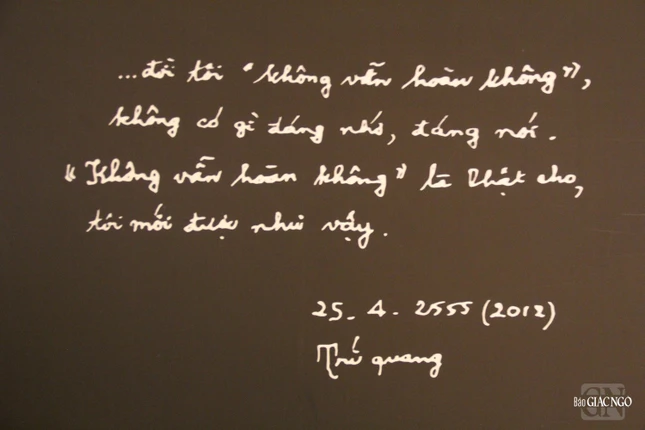 ...đời tôi "không vẫn hoàn không",
không có gì đáng nhớ, đáng nói.
"Không vẫn hoàn không" là Phật cho,
tôi mới được như vậy.
25. 4. 2555 (2012)
Trí quang
GN
Báo GIÁC NGỘ